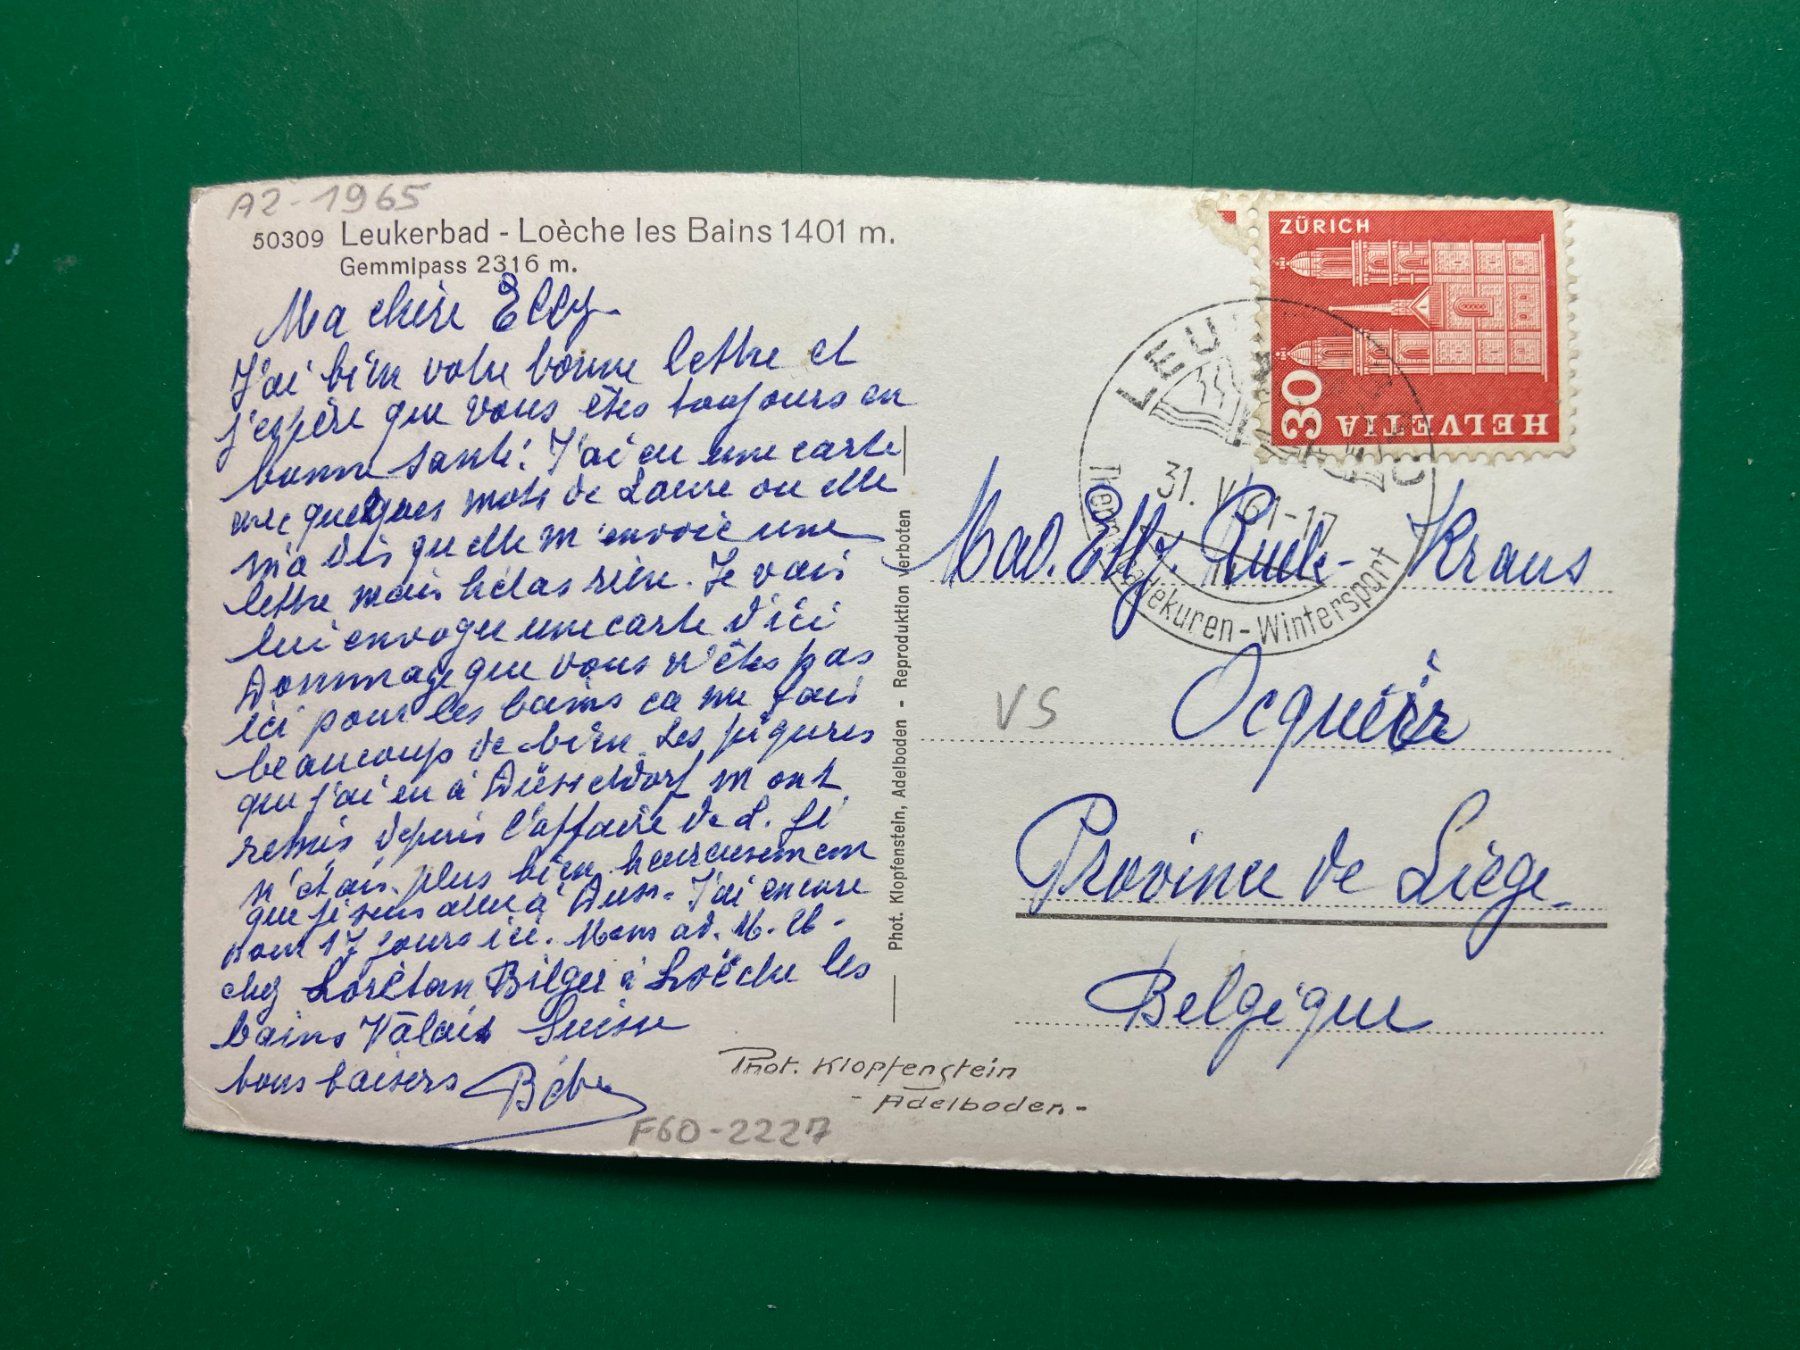 A2-1965
50309 Leukerbad - Loèche les Bains 1401 m.
Gemmipass 2316 m.
Ma chère Elly
J'ai bien votre bonne lettre et
j'espère que vous êtes toujours en
bonne santé. J'ai eu une carte
avec quelques mots de Laure ou elle
m'a dis qu elle m'envoie une
lettre mais hélas rien. Je vais
lui envoyer une carte d'ici
Dommage que vous n'êtes pas
ici pour les bains ca me fais
beaucoup de bien. Les piqures
que j'ai eu à Düsseldorf m ont
remis depuis l'affaire de L. ji
n'étais plus bien heureusement
que je suis allée à Duss. J'ai encore
pour 17 jours ici. Mon ad. M.
chez Lorétan Bilger à Loëche les
bains Valais Suisse
bons baisers Bébé
F60-2227
Phot. Klopfenstein
- Adelboden -
Phot. Klopfenstein, Adelboden - Reproduktion verboten
ZÜRICH
HELVETIA
30
LEU
31. V 61-17
Wintersport
Mad. Elly - Kraus
Ocquier
VS
Province de Liège
Belgique